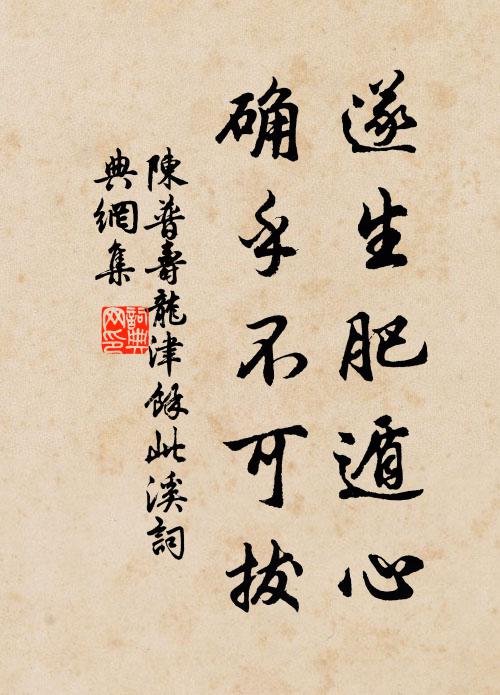 遂生肥遁心
确乎不可拔
陳普壽龍津餘此溪詞
典網集
詞典網印